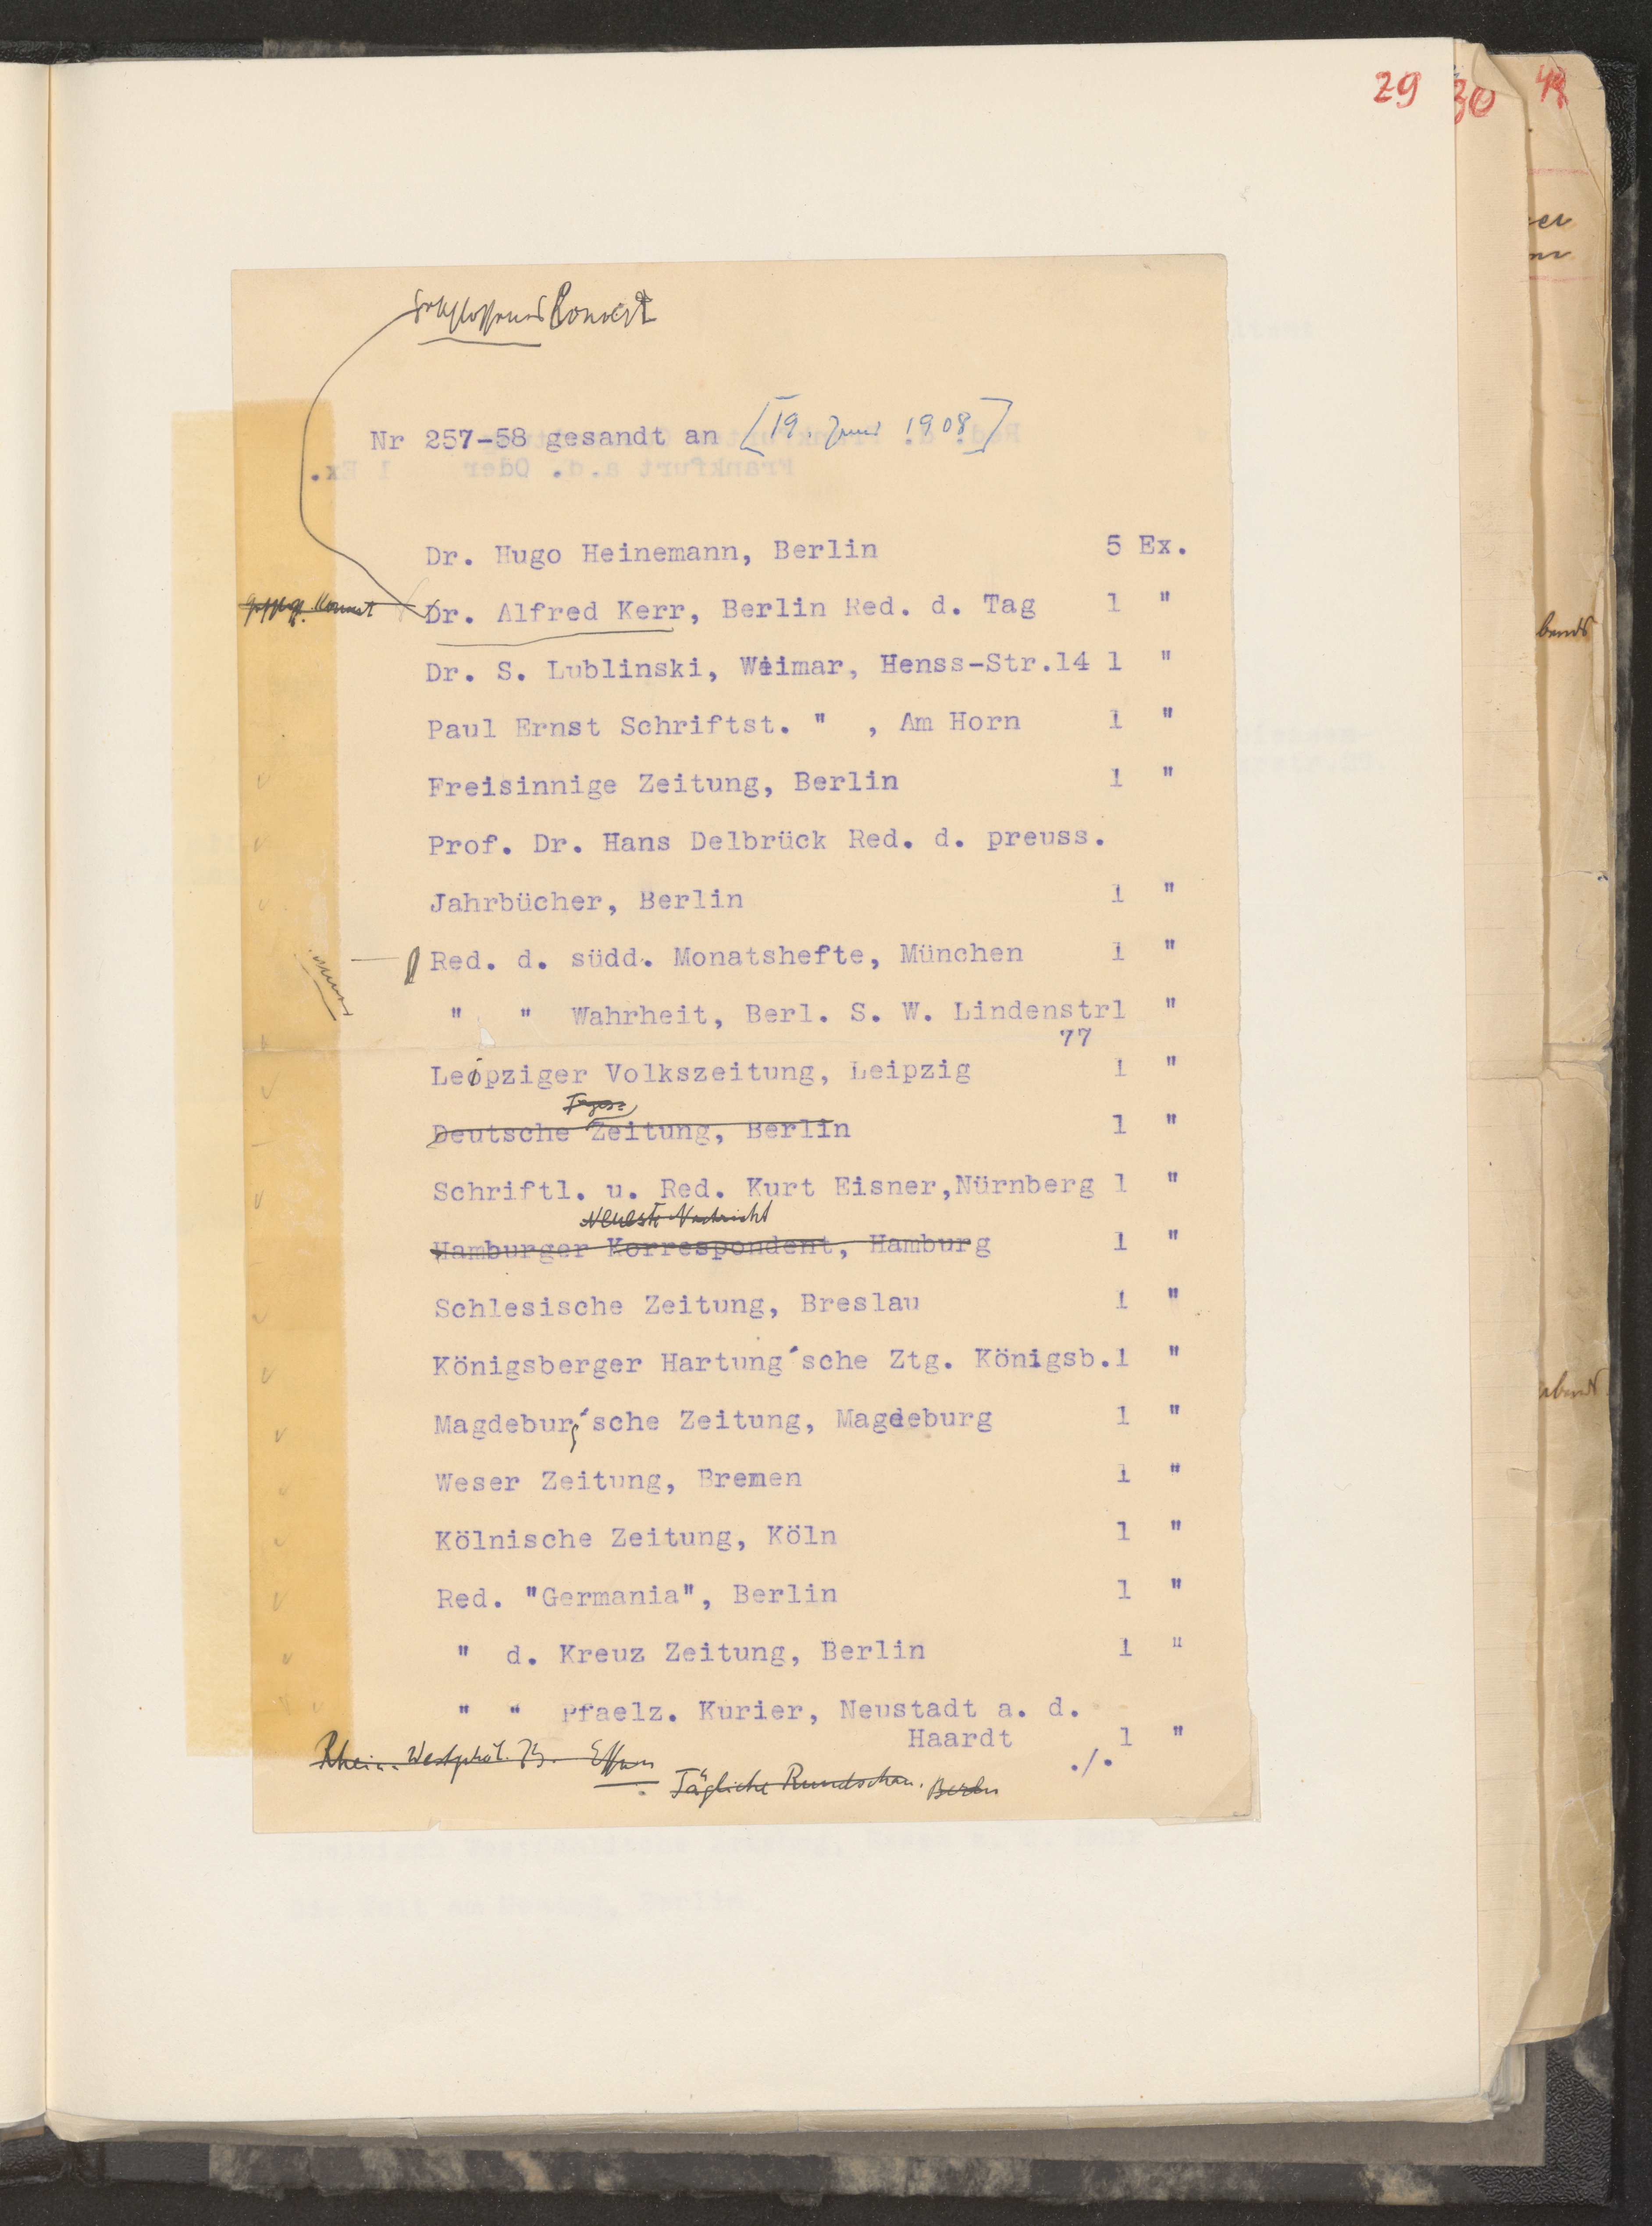 29 30
Konvert
Nr 257-58 gesandt an [19. Juni 1908]
Dr. Hugo Heinemann, Berlin 5 Ex.
Konvert Dr. Alfred Kerr, Berlin Red. d. Tag 1 "
Dr. S. Lublinski, Weimar, Henss-Str.14 1 "
Paul Ernst Schriftst. " , Am Horn 1 "
Freisinnige Zeitung, Berlin 1 "
Prof. Dr. Hans Delbrück Red. d. preuss.
Jahrbücher, Berlin 1 "
Red. d. südd. Monatshefte, München 1 "
" " Wahrheit, Berl. S. W. Lindenstr1 "
77
Leipziger Volkszeitung, Leipzig 1 "
Deutsche Zeitung, Berlin 1 "
Schriftl. u. Red. Kurt Eisner,Nürnberg 1 "
Neueste Nachricht
Hamburger Korrespondent, Hamburg 1 "
Schlesische Zeitung, Breslau 1 "
Königsberger Hartung´sche Ztg. Königsb.1 "
Magdeburg´sche Zeitung, Magdeburg 1 "
Weser Zeitung, Bremen 1 "
Kölnische Zeitung, Köln 1 "
Red. "Germania", Berlin 1 "
" d. Kreuz Zeitung, Berlin 1 "
" " Pfaelz. Kurier, Neustadt a. d.
Haardt 1 "
./.
Rhein. Westphäl. Z. Essen
Tägliche Rundschau. Berlin